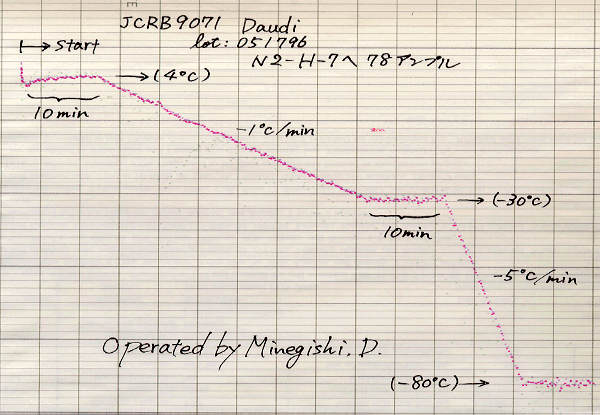 JCRB9071 Daudi
lot: 051796
N2-H-7へ 78アンプル
start
(4°C)
10min
-1°C/min
(-30°C)
10min
-5°C/min
Operated by Minegishi. D.
(-80°C)